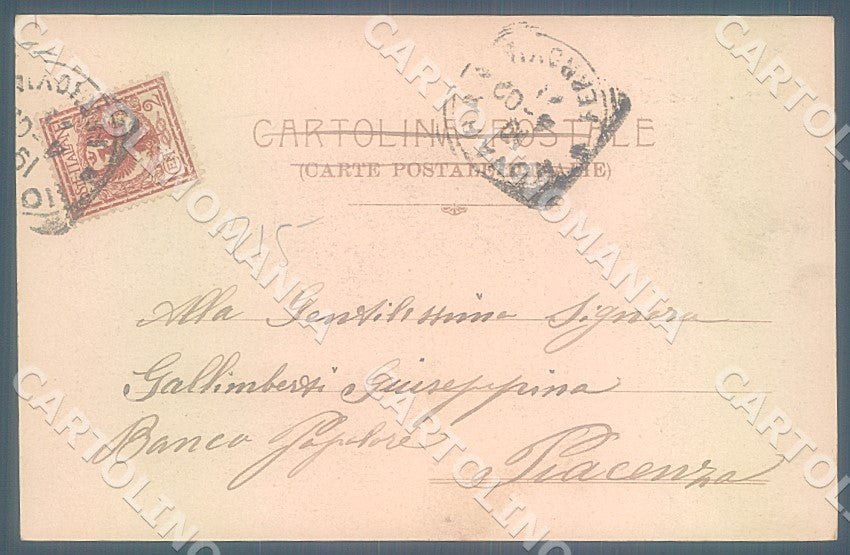 CARTOLINA POSTALE
(CARTE POSTALE ITALIE)
Alla Gentilissima Signora
Gallimberti Giuseppina
Banca Popolare
Piacenza
MILANO
FERROVIA
CARTOLINOMANIA
CARTOLINOMANIA
CARTOLINOMANIA
CARTOLINOMANIA